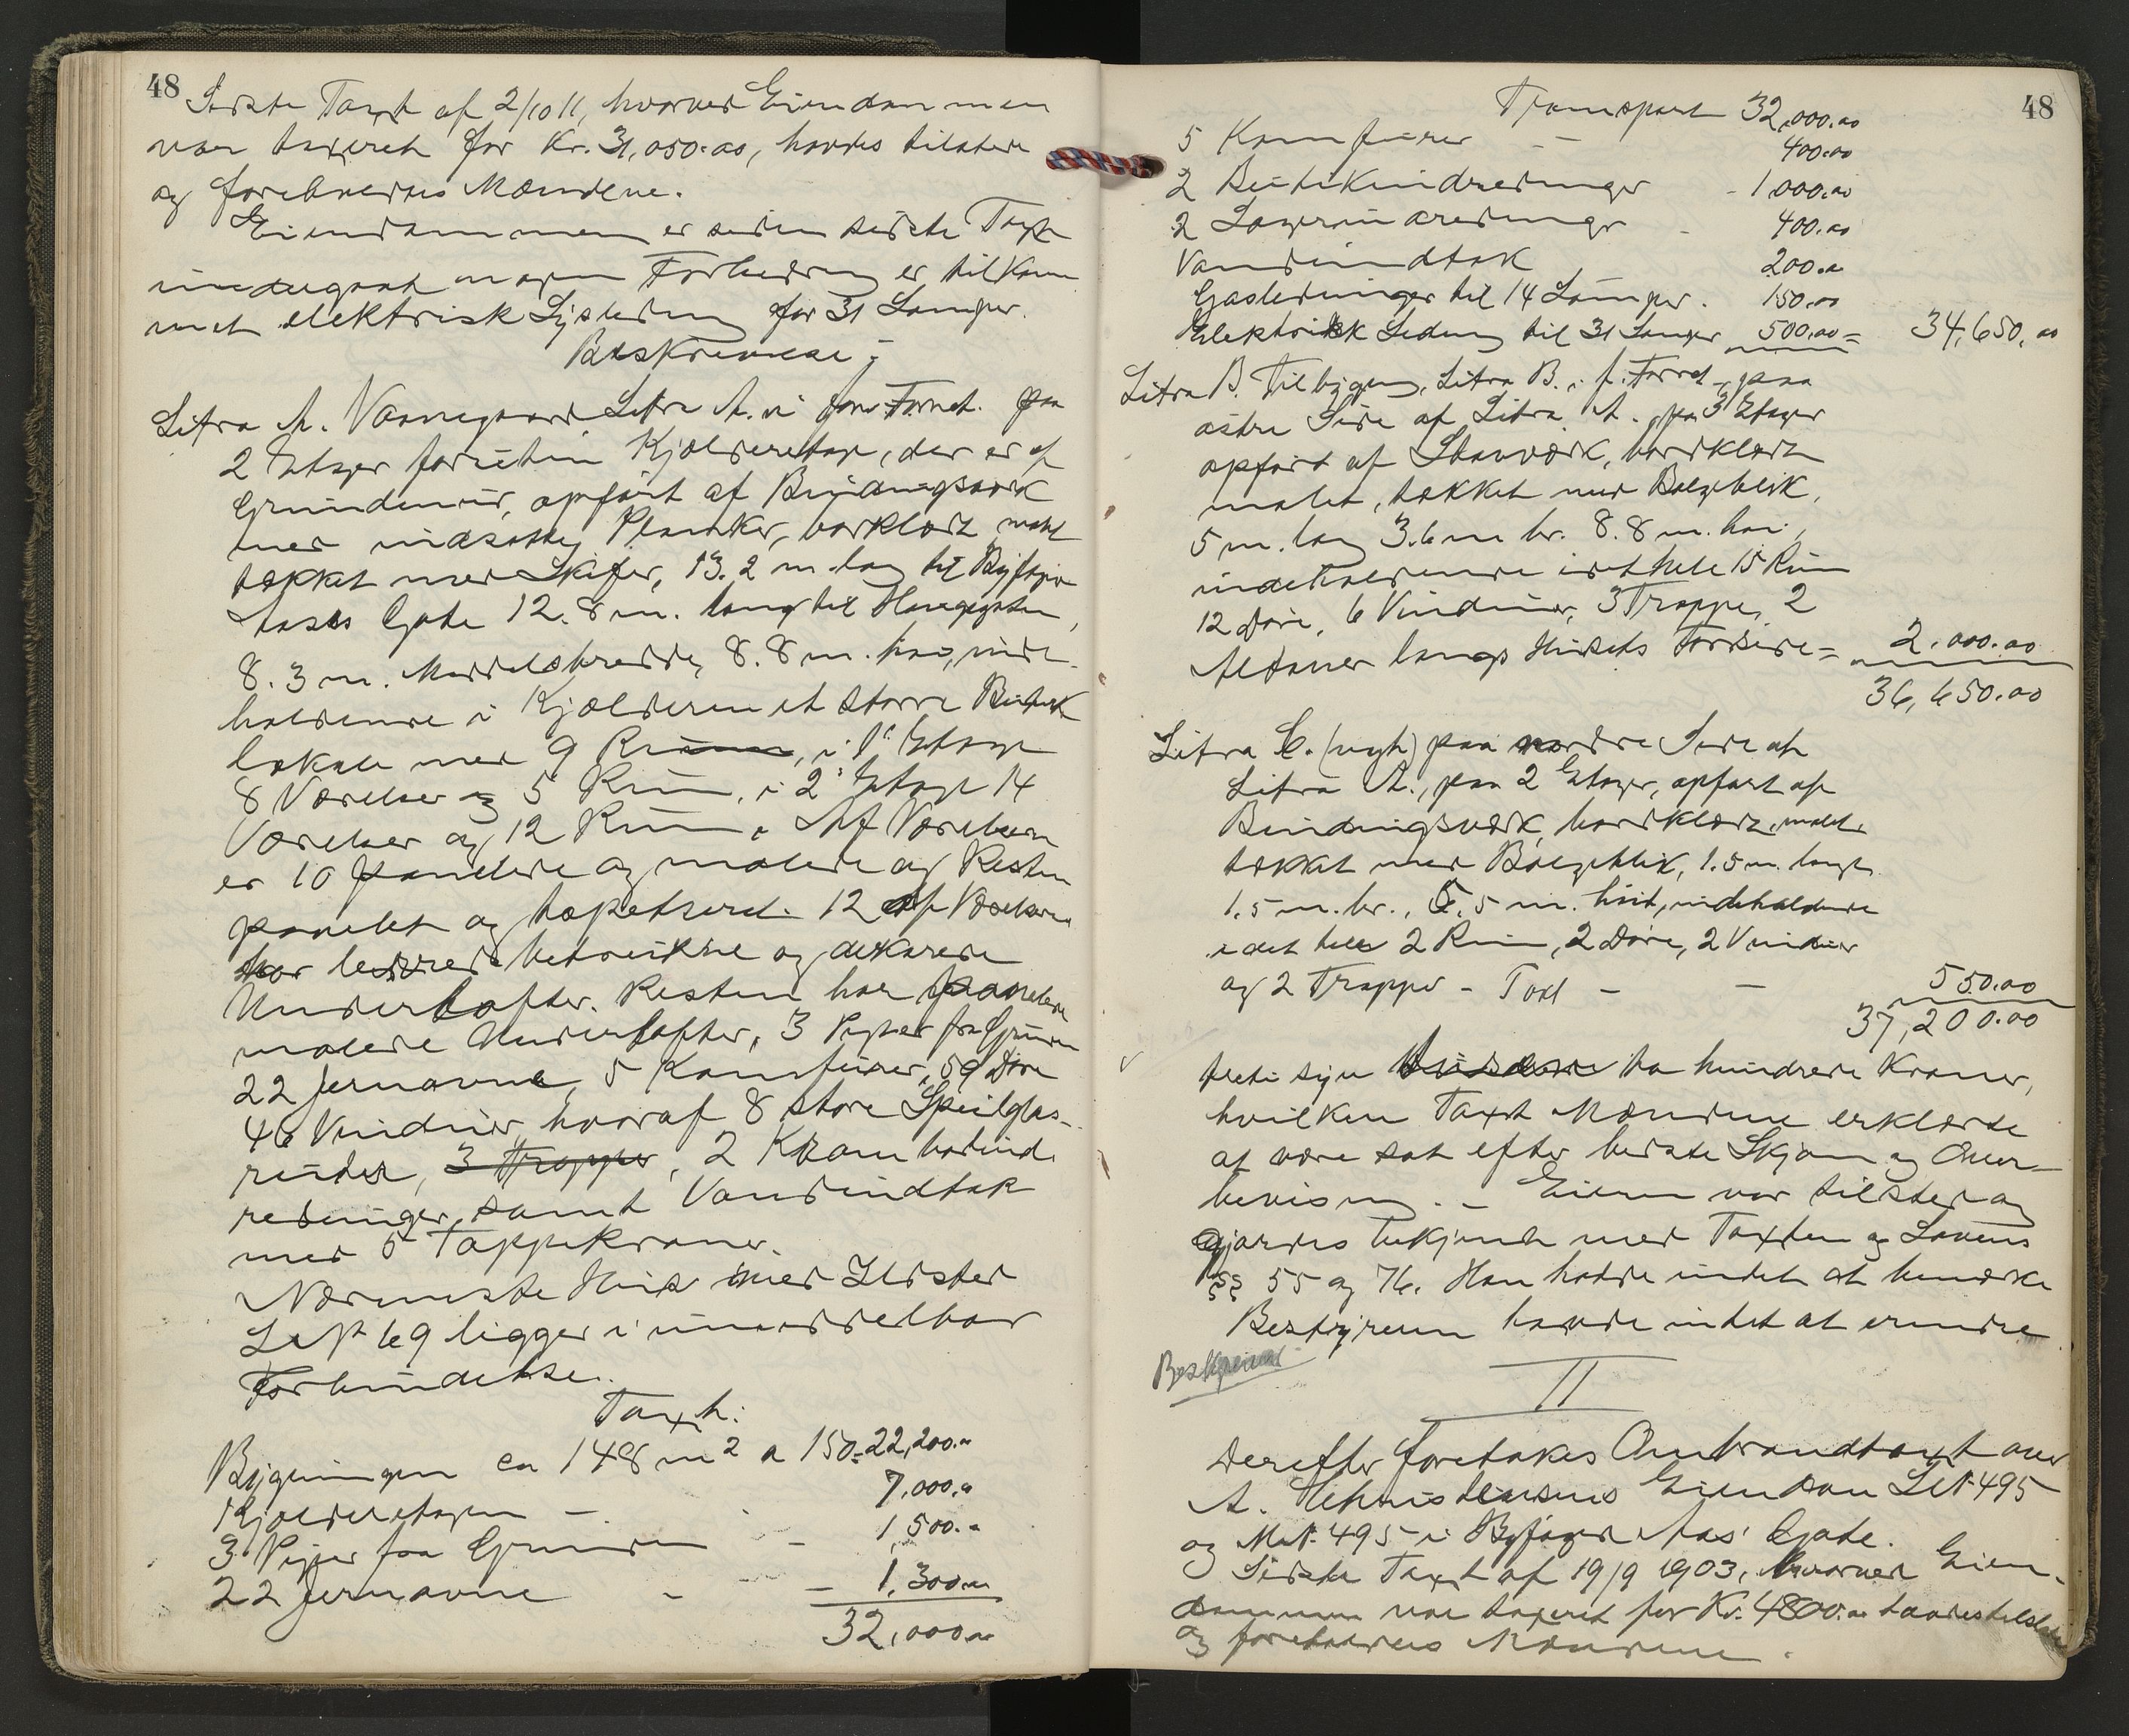 48
Sidste Taxt af 2/10 11, hvorved Eiendommen
var taxeret for Kr. 31,050.00, havdes tilstede
og foreholdtes Mændene.
Eiendommen er siden sidste Taxt
undergaat nogen Forbedring er tilkom
met elektrisk Lysledning for 31 Lamper.
Beskrivelse:
Litra A. Vaaningsgaard Litra A. i forr. Forret. paa
2 Etager foruden Kjælderetage, der er af
Grundmur, opført af Bindingsværk
med indsatte Planker, bordklædt, malt
tækket med Skifer, 13.2 m. lang til Byfoged
Aas's Gate 12.8 m. lang til Havnegaten,
8.3 m. Middelsbredde, 8.8 m. høi, inde-
holdende i Kjælderen et større Butik
lokale med 9 Rum, i 1' Etage
8 Værelser og 5 Rum, i 2' Etage 14
Værelser og 12 Rum. Af Værelserne
er 10 panelede og malede og Resten
panelet og tapetseret. 12 af Værelserne
har lerreds betrukne og dekorerede
Underlofter. Resten har panelede
malede Underlofter, 3 Piper fra Grunden
22 Jernovne, 5 Komfurer, 59 Døre
46 Vinduer, hvoraf 8 store Speilglas-
ruder, 3 Trapper, 2 Krambodind-
redninger, samt Vandindtak
med 5 Tappekraner.
Nærmeste Hus med Ildsted
L No 69 ligger i umiddelbar
Forbindelse.
Taxt:
Bygningen ca 148 m2 a 150 = 22,200.00
Kjælderetagen - 7,000.00
3 Piper fra Grunden - 1,500.00
22 Jernovne - - 1,300.00
32,000.00
48
Transport 32,000.00
5 Komfurer - 400.00
2 Butikindredninger - 1000.00
2 Lagerindredninger - 400.00
Vandindtak 200.00
Gasledninger til 14 Lamper. 150.00
Elektrisk Ledning til 31 Lamper 500.00 = 34,650.00
Litra B. Tilbygning, Litra B. i f. Forret., paa
østre Side af Litra A., paa 3 Etager
opført af Stavværk, bordklædt
malet, tækket med Bølgeblik,
5 m. lang 3.6 m br. 8.8 m. høi,
indeholdende i det hele 15 Rum
12 Døre, 6 Vinduer, 3 Trapper, 2
Altaner langs Husets Forside = 2,000.00
36,650.00
Litra C. (nyt) paa nordre Side af
Litra A., paa 2 Etager, opført af
Bindingsværk, bordklædt, malet
tækket med Bølgeblik, 1.5 m. langt
1.5 m. br., 6.5 m. høit, indeholdende
i det hele 2 Rum, 2 Døre, 2 Vinduer
og 2 Trapper - Taxt - - 550.00
37,200.00
treti syv tusinde to hundrede Kroner,
hvilken Taxt Mændene erklærte
at være sat efter bedste Skjøn og Over-
bevisning. - Eieren var tilstede og
gjordes bekjendt med Taxten og Lovens
§§ 55 og 76. Han hadde intet at bemærke
Bestyreren havde intet at erindre
Beskreven
II
Derefter foretokes Ombrandtaxt over
A. Christensens Eiendom L No 495
og M.No. 495 i Byfoged Aas' Gate.
Sidste Taxt af 19/9 1903, hvorved Eien-
dommen var taxeret for Kr. 4800.00 havdes tilstede
og foreholdtes Mændene.